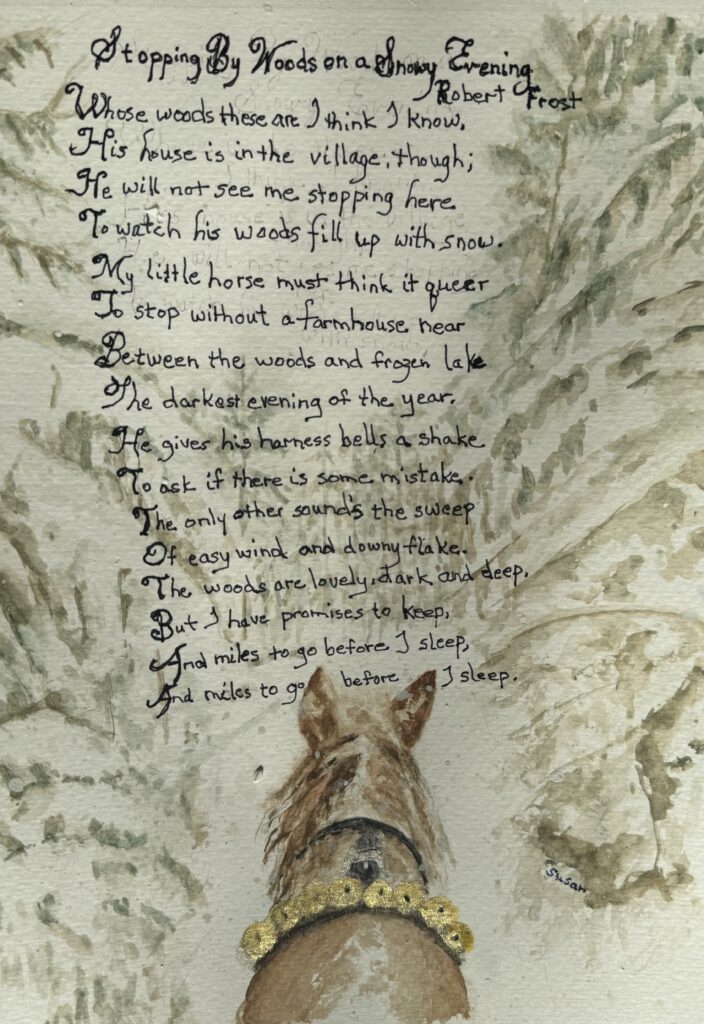 Stopping By Woods on a Snowy Evening
Robert Frost
Whose woods these are I think I know.
His house is in the village, though;
He will not see me stopping here
To watch his woods fill up with snow.
My little horse must think it queer
To stop without a farmhouse near
Between the woods and frozen lake
The darkest evening of the year.
He gives his harness bells a shake
To ask if there is some mistake.
The only other sound's the sweep
Of easy wind and downy flake.
The woods are lovely, dark and deep.
But I have promises to keep,
And miles to go before I sleep,
And miles to go before I sleep.
Susan